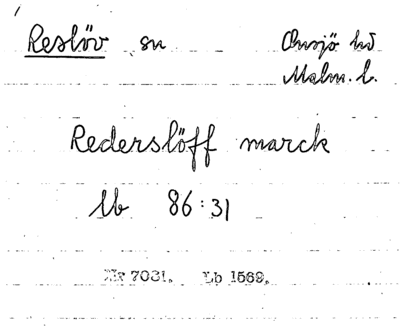 Reslöv sn Onsjö hd
Malm. l.
Rederslöff marck
lb 86:31
Nr 7031. Lb 1569.